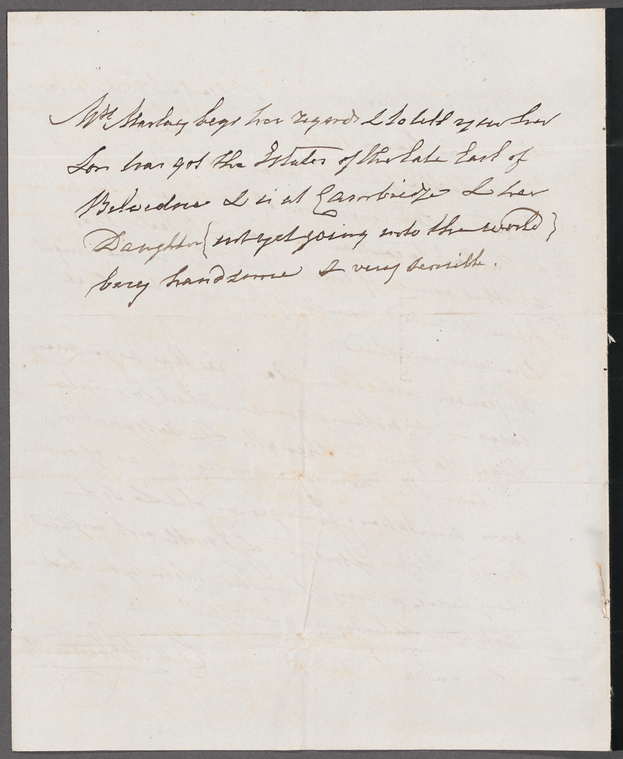 Mrs Marlay begs her regards & to tell you her
Son has got the Estates of the late Earl of
Belvedere & is at Cambridge & her
Daughter (not yet going into the world)
very handsome & very sensible.